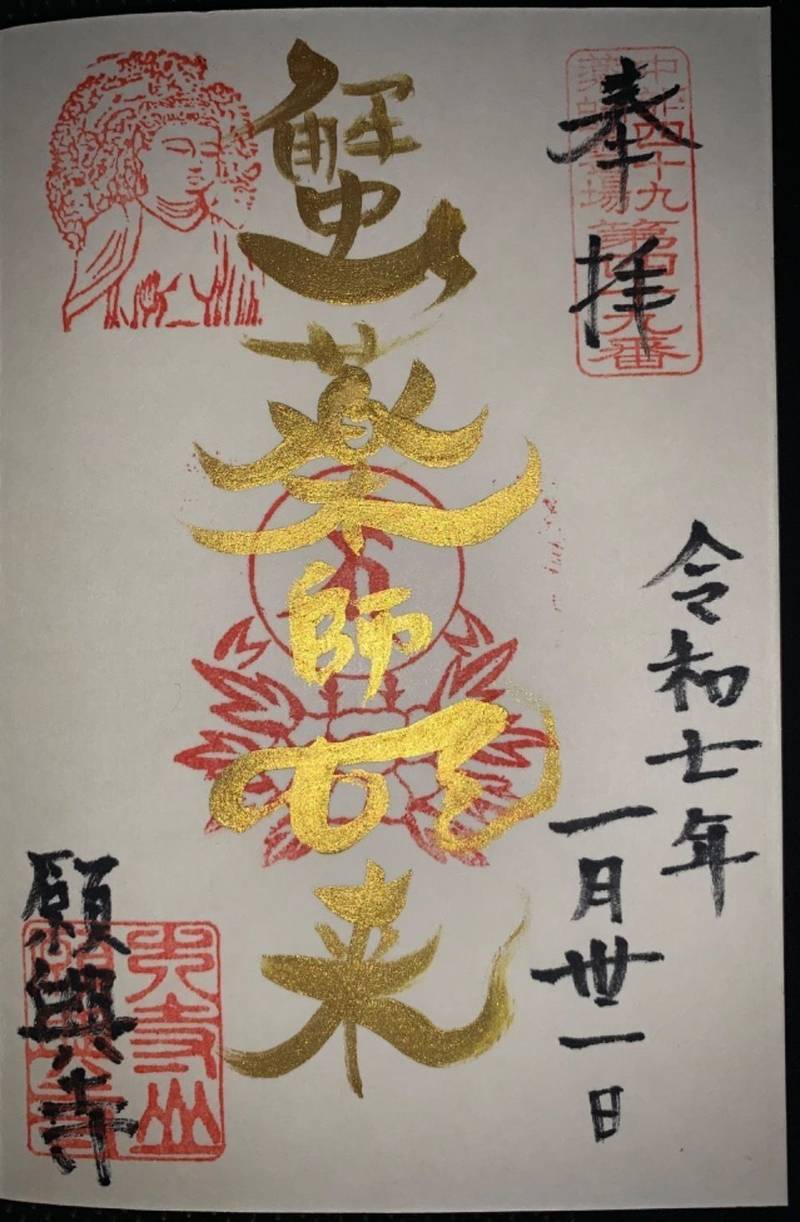 奉拝
中部四十九
薬師霊場
第四十九番
令和七年
一月丗一日
蟹薬師如来
願興寺